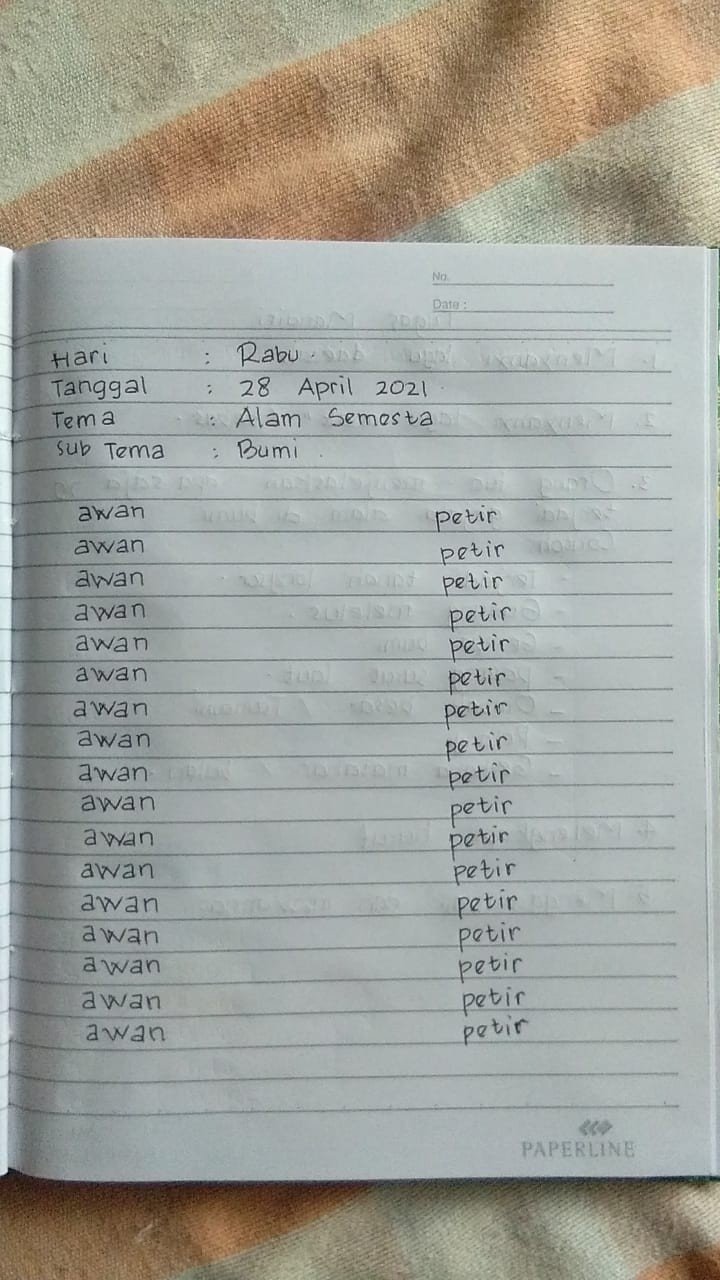 No.
Date :
Hari : Rabu.
Tanggal : 28 April 2021
Tema : Alam Semesta
Sub Tema : Bumi.
awan petir
awan petir
awan petir
awan petir
awan petir
awan petir
awan petir
awan petir
awan petir
awan petir
awan petir
awan petir
awan petir
awan petir
awan petir
awan petir
awan petir
PAPERLINE